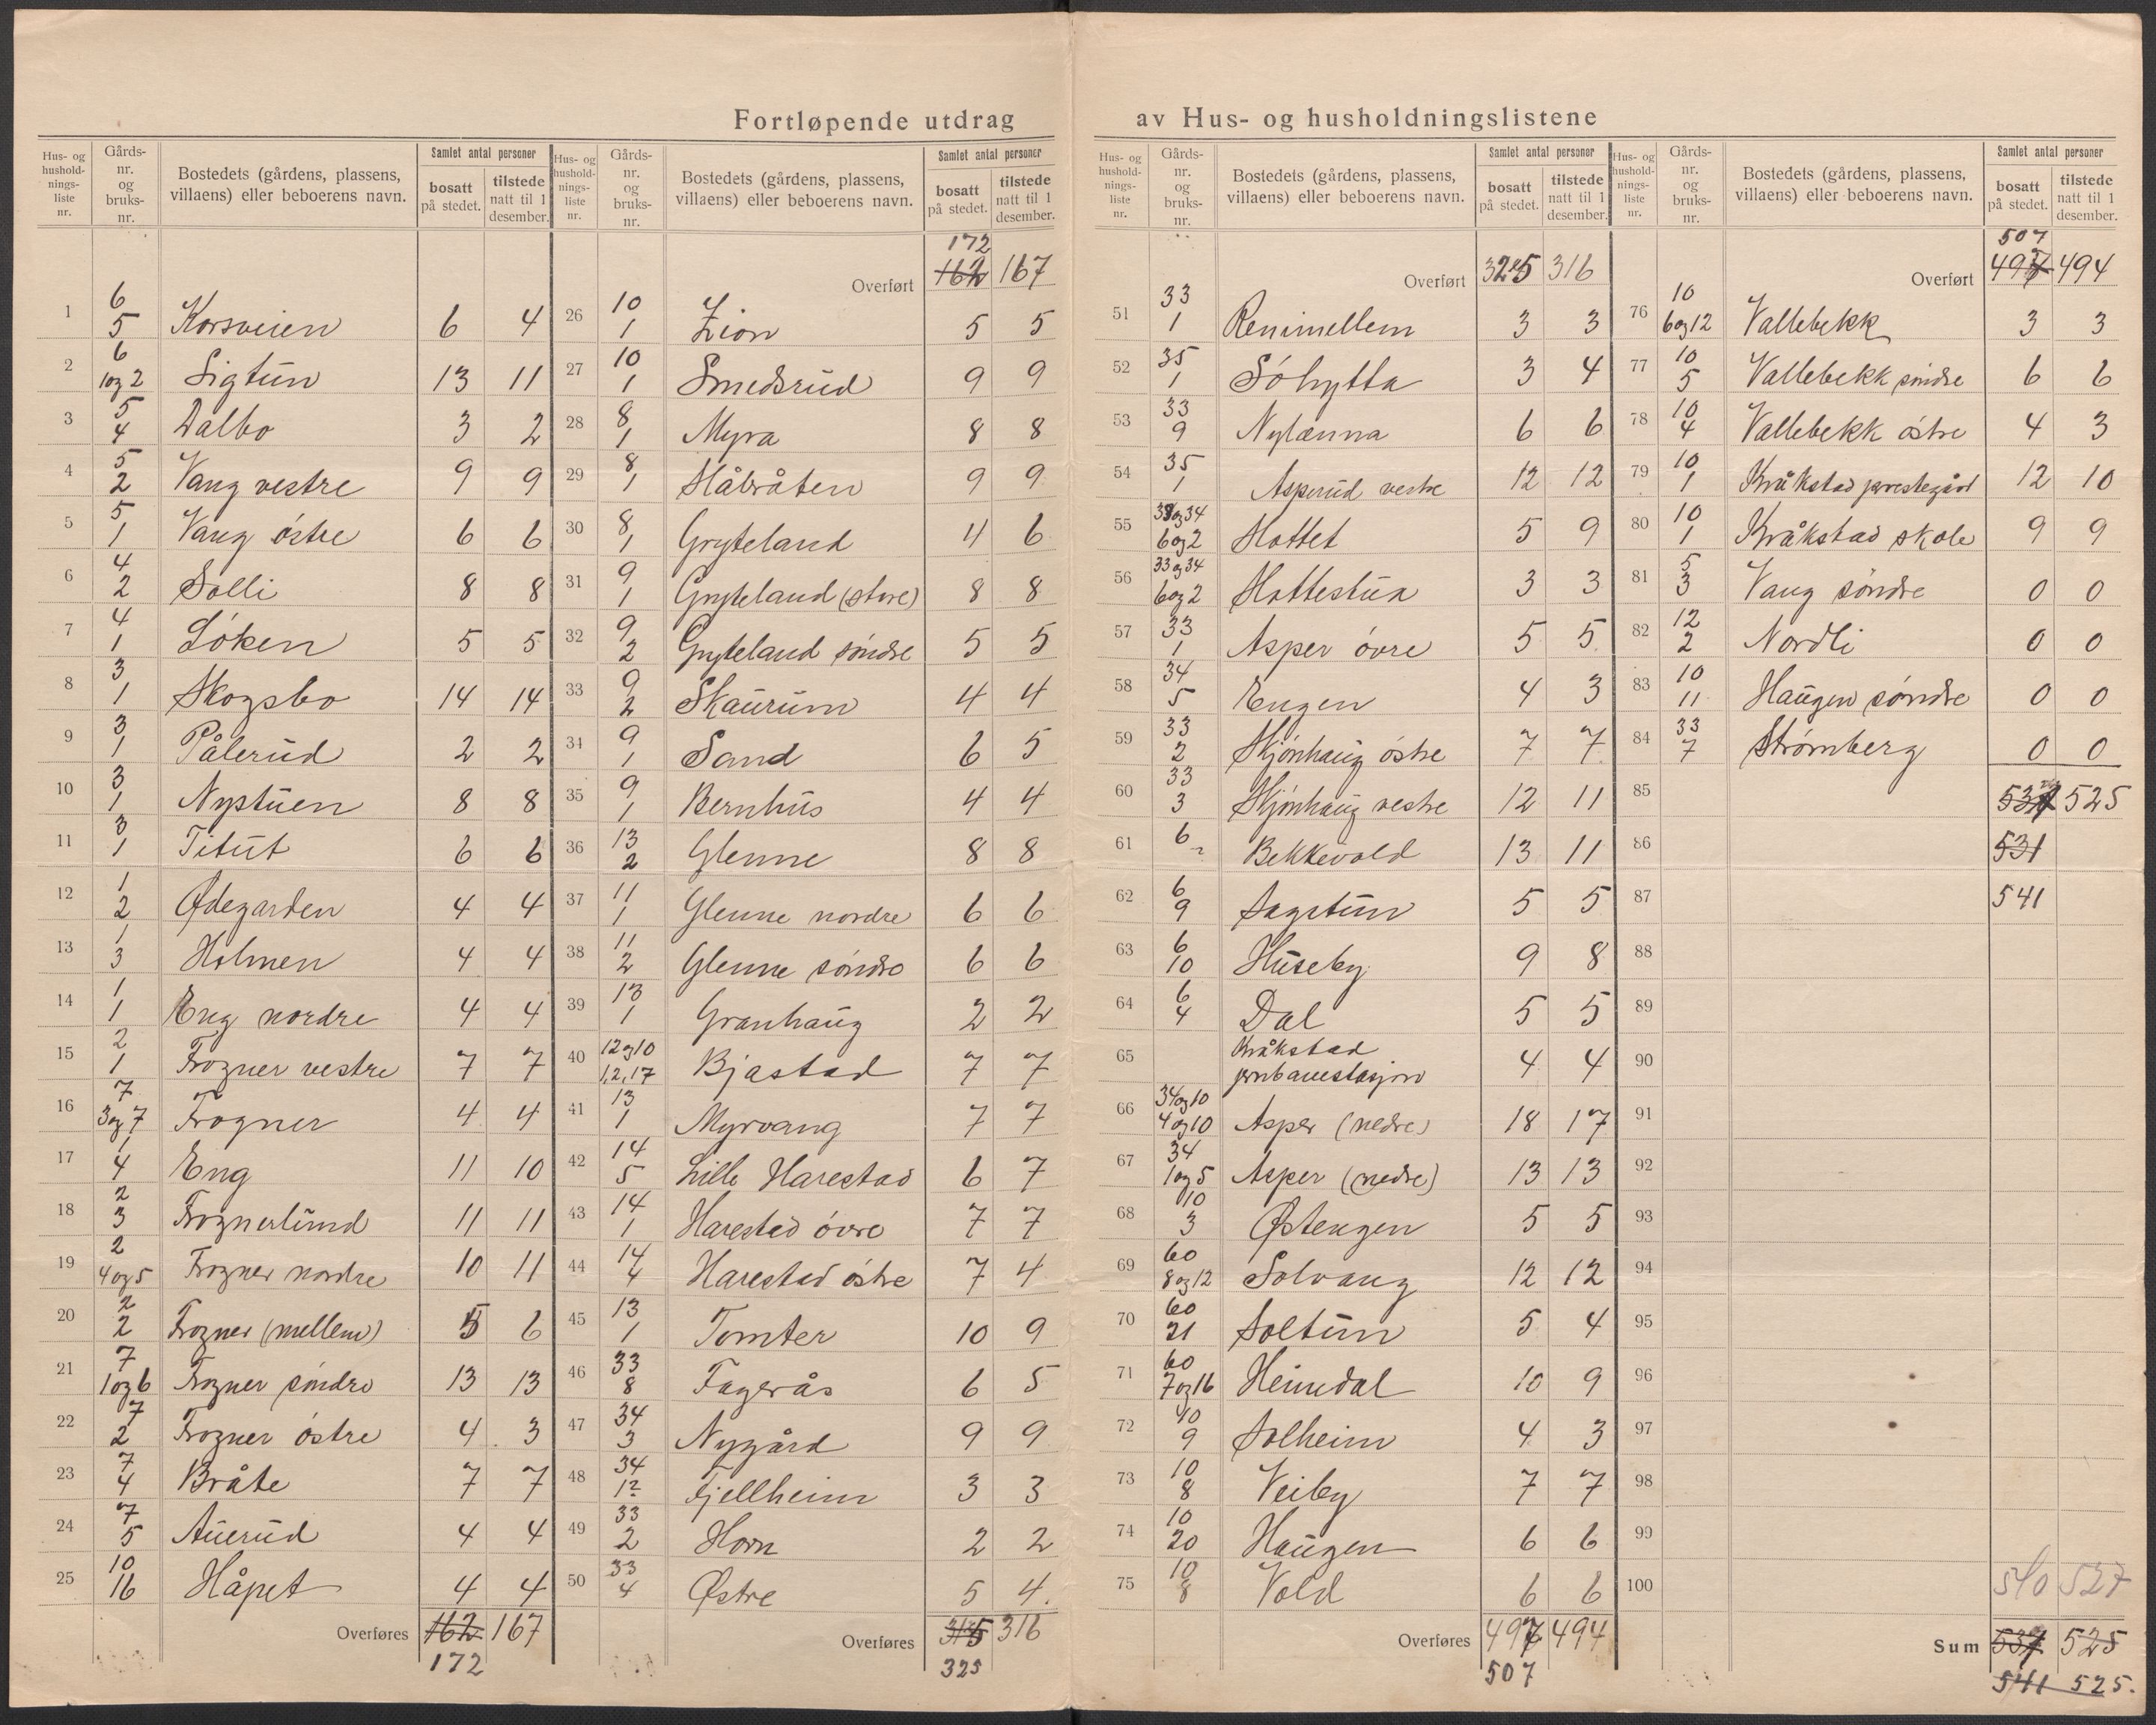 Fortløpende utdrag av Hus- og husholdningslistene
Hus- og hushold-nings-liste nr. | Gårds-nr. og bruks-nr. | Bostedets (gårdens, plassens, villaens) eller beboerens navn. | Samlet antal personer | bosatt på stedet. | tilstede natt til 1 desember.
1 6 5 Korsveien 6 4
2 6 1og2 Sigtun 13 11
3 5 4 Dalbo 3 2
4 5 2 Vang vestre 9 9
5 5 1 Vang østre 6 6
6 4 2 Solli 8 8
7 4 1 Løken 5 5
8 3 1 Skogsbo 14 14
9 3 1 Pålerud 2 2
10 3 1 Nystuen 8 8
11 3 1 Titut 6 6
12 1 2 Ødegarden 4 4
13 1 3 Holmen 4 4
14 1 1 Eng nordre 4 4
15 2 1 Frogner vestre 7 7
16 7 3og7 Frogner 4 4
17 1 4 Eng 11 10
18 2 3 Frognerlund 11 11
19 2 4og5 Frogner nordre 10 11
20 2 2 Frogner (mellem) 5 6
21 7 1og6 Frogner søndre 13 13
22 7 2 Frogner østre 4 3
23 7 4 Bråte 7 7
24 7 5 Auerud 4 4
25 10 16 Håpet 4 4
Overføres 162 167
172
Hus- og hushold-nings-liste nr. | Gårds-nr. og bruks-nr. | Bostedets (gårdens, plassens, villaens) eller beboerens navn. | Samlet antal personer | bosatt på stedet. | tilstede natt til 1 desember.
172
Overført 162 167
26 10 1 Zion 5 5
27 10 1 Smedsrud 9 9
28 8 1 Myra 8 8
29 8 1 Håbråten 9 9
30 8 1 Gryteland 4 6
31 9 1 Gryteland (store) 8 8
32 9 2 Gryteland søndre 5 5
33 9 2 Skaurum 4 4
34 9 1 Sand 6 5
35 9 1 Bernhus 4 4
36 13 2 Glenne 8 8
37 11 1 Glenne nordre 6 6
38 11 2 Glenne søndre 6 6
39 13 1 Granhaug 2 2
40 12og10 1,2,17 Bjastad 7 7
41 13 1 Myrvang 7 7
42 14 5 Lille Harestad 6 7
43 14 1 Harestad øvre 7 7
44 14 4 Harestad østre 7 4
45 13 1 Tomter 10 9
46 33 8 Fagerås 6 5
47 34 3 Nygård 9 9
48 34 12 Fjellheim 3 3
49 33 2 Horn 2 2
50 33 4 Østre 5 4.
Overføres 315 316
325
Hus- og hushold-nings-liste nr. | Gårds-nr. og bruks-nr. | Bostedets (gårdens, plassens, villaens) eller beboerens navn. | Samlet antal personer | bosatt på stedet. | tilstede natt til 1 desember.
Overført 325 316
51 33 1 Renimellem 3 3
52 35 1 Søhytta 3 4
53 33 9 Nylænna 6 6
54 35 1 Asperud vestre 12 12
55 33og34 6og2 Hottet 5 9
56 33og34 6og2 Hottestua 3 3
57 33 1 Asper øvre 5 5
58 34 5 Engen 4 3
59 33 2 Skjønhaug østre 7 7
60 33 3 Skjønhaug vestre 12 11
61 6 2 Bekkevold 13 11
62 6 9 Sagstun 5 5
63 6 10 Huseby 9 8
64 6 4 Dal 5 5
65 Kråkstad jernbanestasjon 4 4
66 34og10 4og10 Asper (nedre) 18 17
67 34 1og5 Asper (nedre) 13 13
68 10 3 Østengen 5 5
69 60 8og12 Solvang 12 12
70 60 21 Soltun 5 4
71 60 7og16 Heimdal 10 9
72 10 9 Solheim 4 3
73 10 8 Veiby 7 7
74 10 20 Haugen 6 6
75 10 8 Vold 6 6
Overføres 497 494
507
Hus- og hushold-nings-liste nr. | Gårds-nr. og bruks-nr. | Bostedets (gårdens, plassens, villaens) eller beboerens navn. | Samlet antal personer | bosatt på stedet. | tilstede natt til 1 desember.
507
Overført 497 494
76 10 6og12 Vallebekk 3 3
77 10 5 Vallebekk søndre 6 6
78 10 4 Vallebekk østre 4 3
79 10 1 Kråkstad prestegård 12 10
80 10 1 Kråkstad skole 9 9
81 5 3 Vang søndre 0 0
82 12 2 Nordli 0 0
83 10 11 Haugen søndre 0 0
84 33 7 Strømberg 0 0
85 537 525
86 531
87 541
88
89
90
91
92
93
94
95
96
97
98
99
100 540 527
Sum 537 525
541 525.